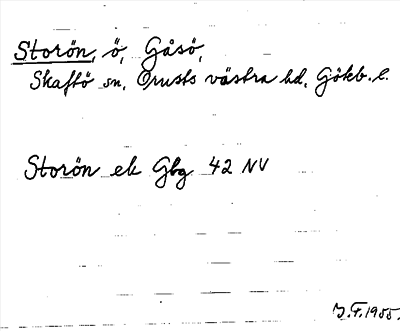 Storön, ö, Gåsö,
Skaftö sn, Orusts västra hd, Gökb. l.
Storön ek Gbg 42 NV
J.F. 1955.